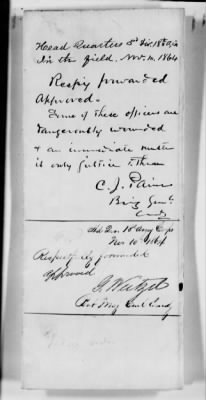 Head Quarters 3d Div. 18th A.C.
In the field. Nov. 10. 1864
Respy forwarded
Approved.
Some of these officers are
dangerously wounded
& an immediate muster
is only justice to them
C. J. Paine
Brig Genl.
Comdg
Hd Qrs. 18 Army Corps
Nov 10 1864
Respectfully forwarded
approved
G. Weitzel
Bvt Maj Genl Comdg